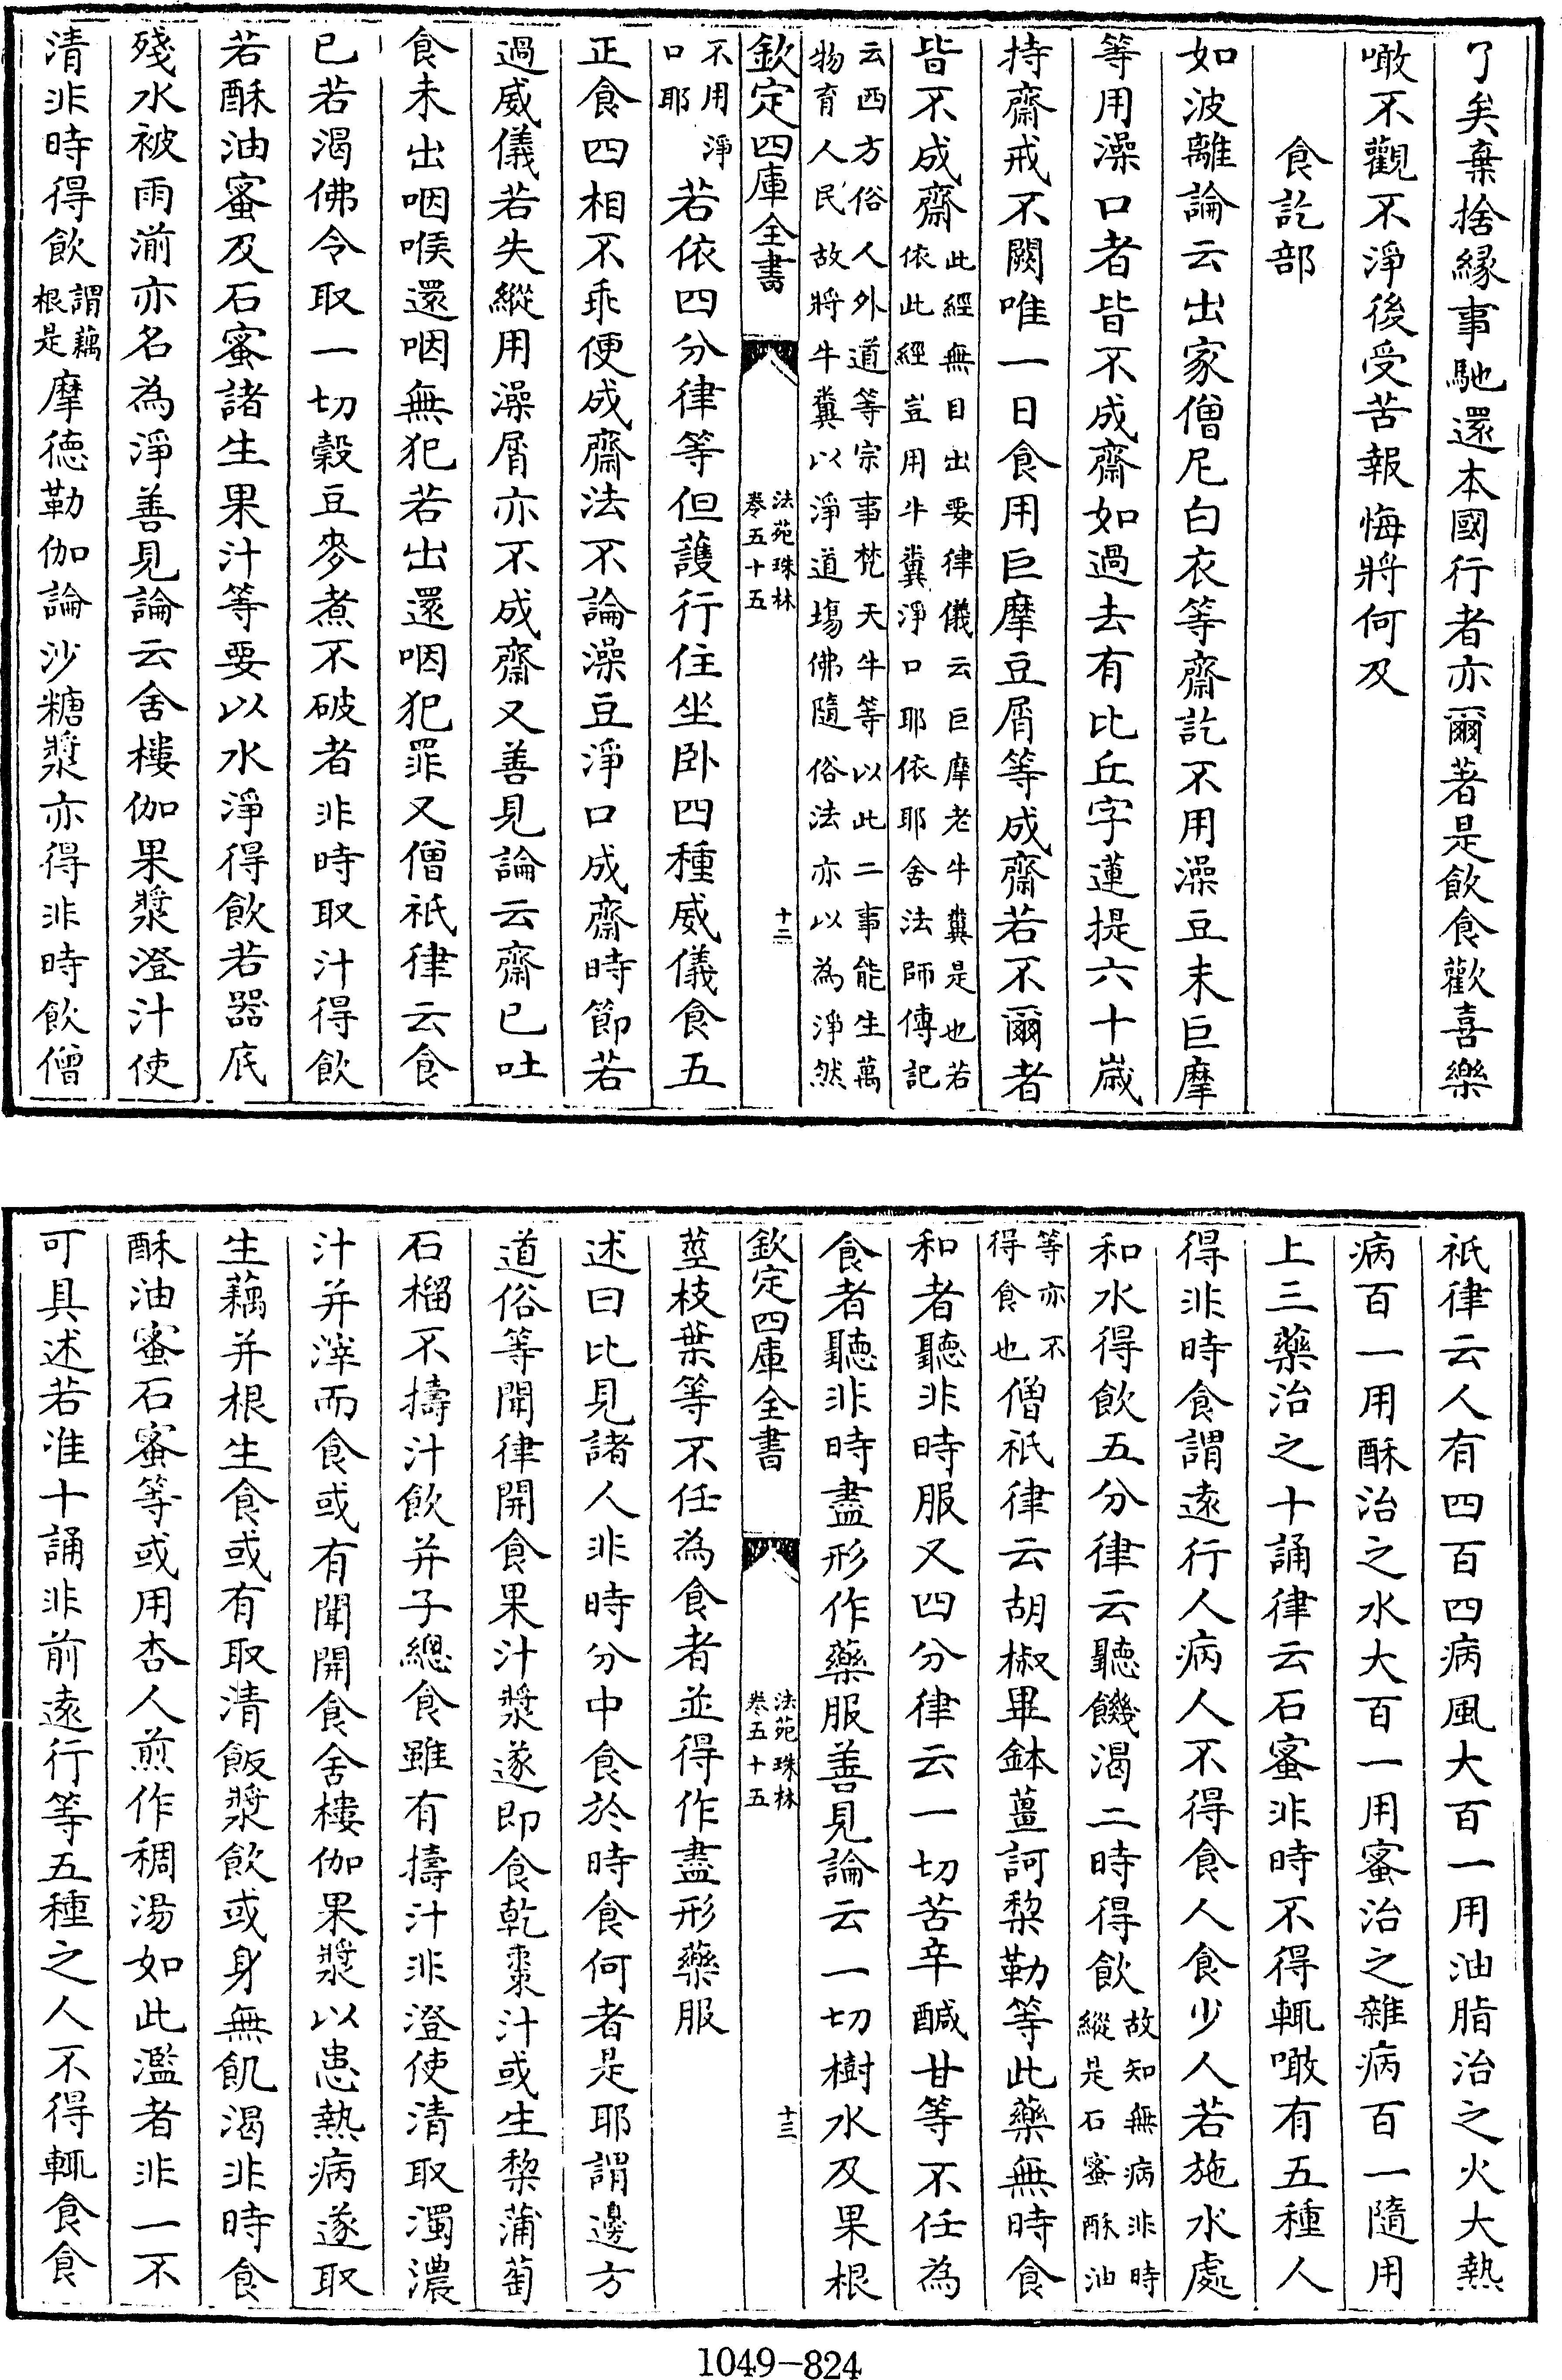 了矣棄捨縁事馳還本國行者亦爾著是飲食歡喜樂
噉不觀不淨後受苦報悔將何及
食訖部
如波離論云出家僧尼白衣等齋訖不用澡豆末巨摩
等用澡口者皆不成齋如過去有比丘字蓮提六十嵗
持齋戒不闕唯一日食用巨摩豆屑等成齋若不爾者
皆不成齋此經無目出要律儀云巨摩老牛糞是也若依此經豈用牛糞淨口耶依耶舍法師傳記
云西方俗人外道等宗事梵天牛等以此二事能生萬物育人民故將牛糞以淨道塲佛隨俗法亦以為淨然
欽定四庫全書
法苑珠林
卷五十五
十二
不用淨口耶若依四分律等但護行住坐卧四種威儀食五
正食四相不乖便成齋法不論澡豆淨口成齋時節若
過威儀若失縱用澡屑亦不成齋又善見論云齋已吐
食未出咽喉還咽無犯若出還咽犯罪又僧祇律云食
已若渴佛令取一切穀豆麥煮不破者非時取汁得飲
若酥油蜜及石蜜諸生果汁等要以水淨得飲若器底
殘水被雨湔亦名為淨善見論云舍樓伽果漿澄汁使
清非時得飲謂藕根是摩德勒伽論沙糖漿亦得非時飲僧
祇律云人有四百四病風大百一用油脂治之火大熱
病百一用酥治之水大百一用蜜治之雜病百一隨用
上三藥治之十誦律云石蜜非時不得輒噉有五種人
得非時食謂逺行人病人不得食人食少人若施水處
和水得飲五分律云聽饑渴二時得飲故知無病非時縱是石蜜酥油
等亦不得食也僧祇律云胡椒畢鉢薑訶棃勒等此藥無時食
和者聽非時服又四分律云一切苦辛鹹甘等不任為
食者聽非時盡形作藥服善見論云一切樹水及果根
欽定四庫全書
法苑珠林
卷五十五
十三
莖枝葉等不任為食者並得作盡形藥服
述曰比見諸人非時分中食於時食何者是耶謂邊方
道俗等聞律開食果汁漿遂即食乾棗汁或生棃蒲萄
石榴不擣汁飲并子總食雖有擣汁非澄使清取濁濃
汁并滓而食或有聞開食舍樓伽果漿以患熱病遂取
生藕并根生食或有取清飯漿飲或身無飢渴非時食
酥油蜜石蜜等或用杏人煎作稠湯如此濫者非一不
可具述若准十誦非前逺行等五種之人不得輒食食
1049-824